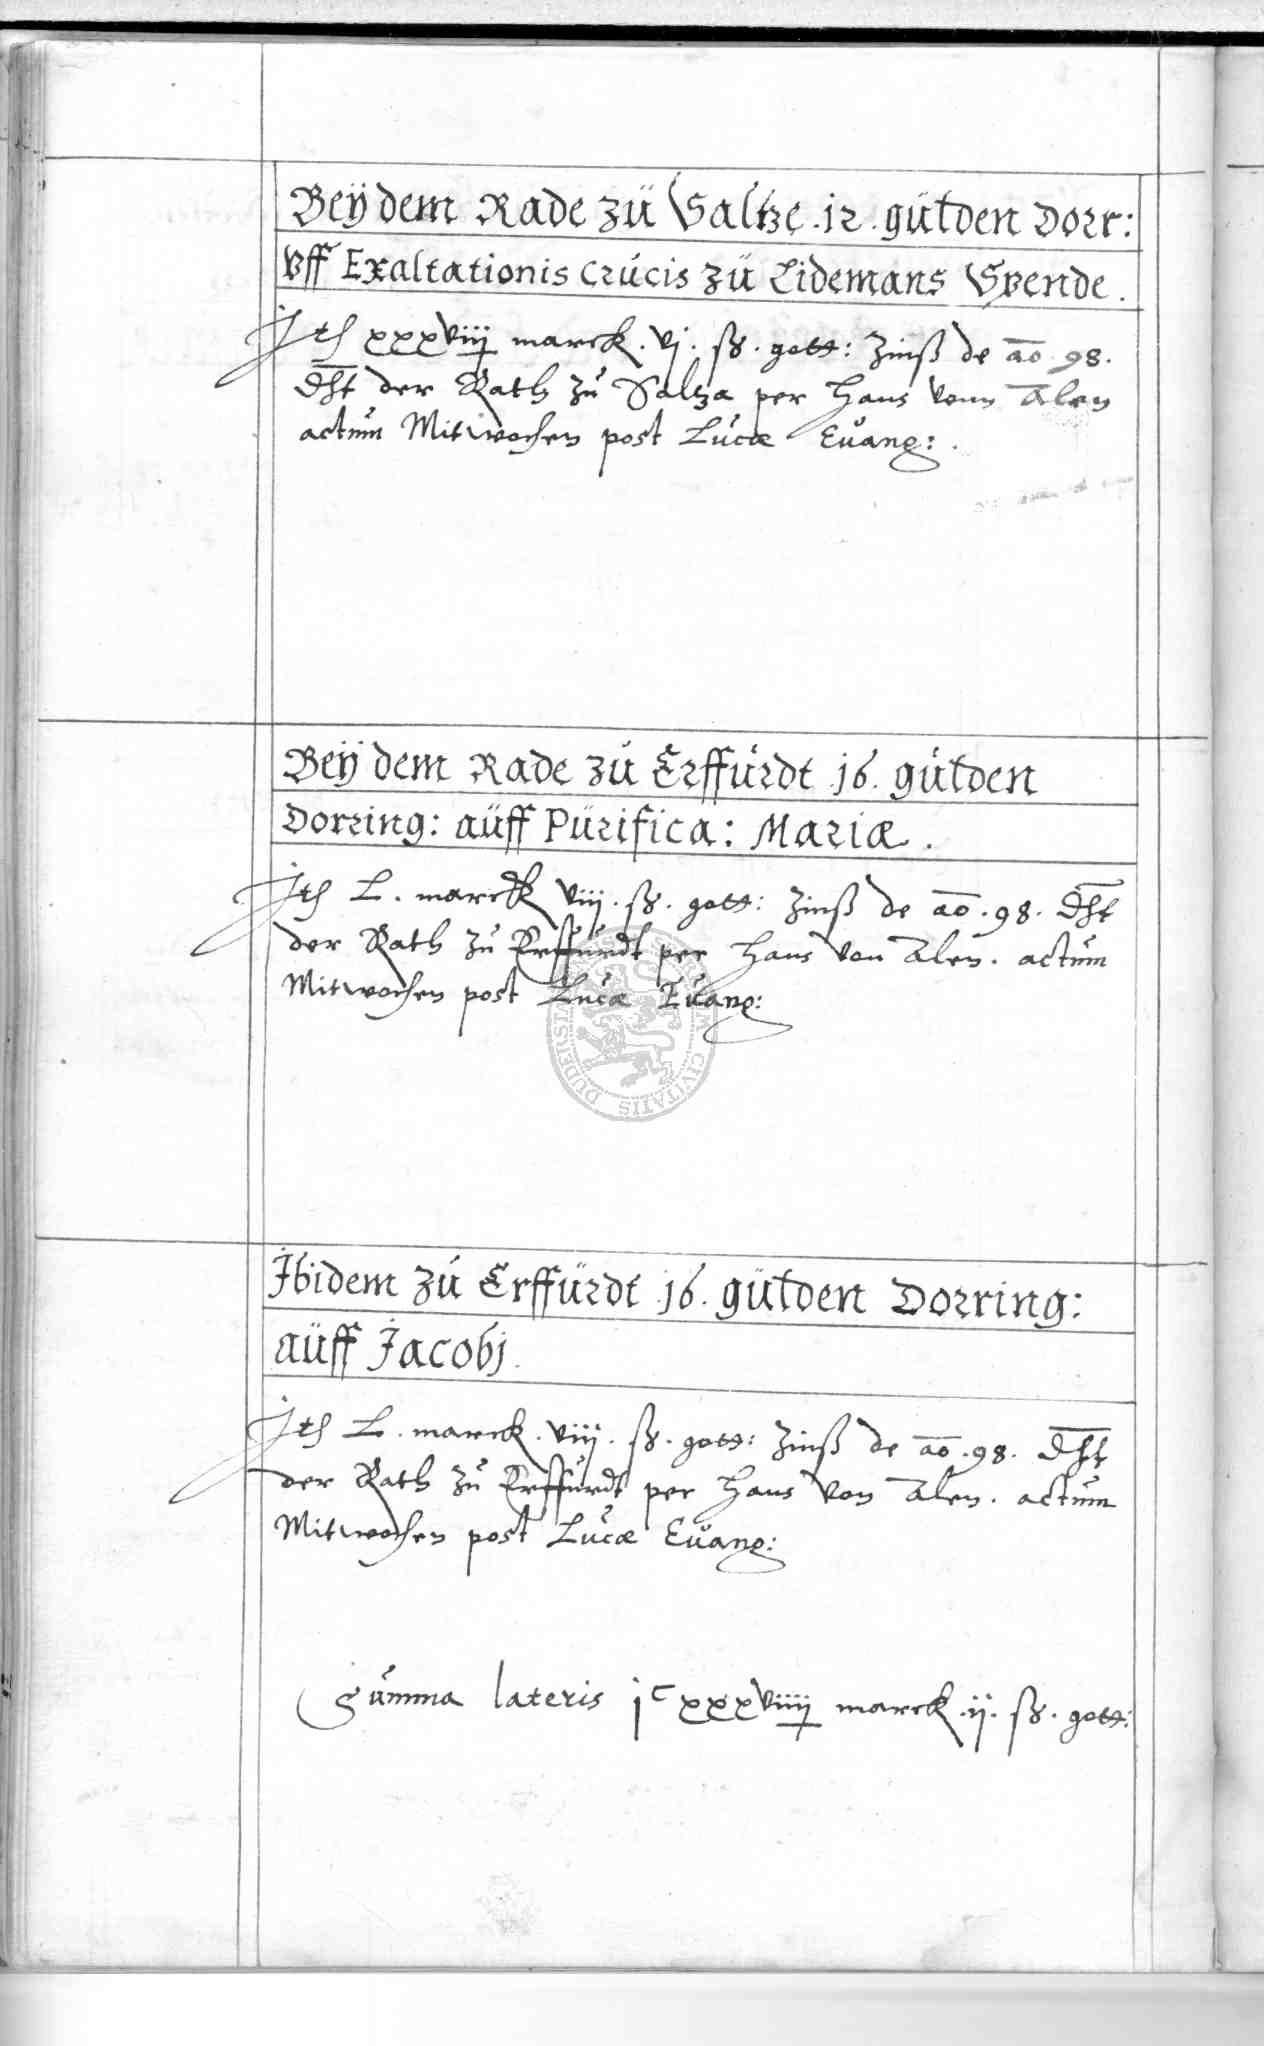 Beÿ dem Rade zü Saltze .12. gülden Dorr:
Vff Exaltationis Crucis zü Lidemans Spende.
Jtem xxxviij marck . vj . ß . gott: Zinß de ao . 98.
dst der Rath zu Saltza per Hans vonn Alen
actum Mitwochen post Lucæ Euang: .
Beÿ dem Rade zu Erffurdt .16. gulden
Dorring: aüff Pürifica: Mariæ .
Jtem L . marck viij . ß . gott: Zinß de ao . 98. dst
der Rath zu Erffurdt per Hans von Alen . actum
Mitwochen post Lucæ Euang:
Jbidem zu Erffürdt .16. gülden Dorring:
aüff Jacobj.
Jtem L . marck . viij . ß . gott: Zinß de ao . 98. dst
der Rath zu Erffurdt per Hans von Alen . actum
Mitwochen post Lucæ Euang:
Summa lateris jc xxxviiij marck .ij. ß . gott: